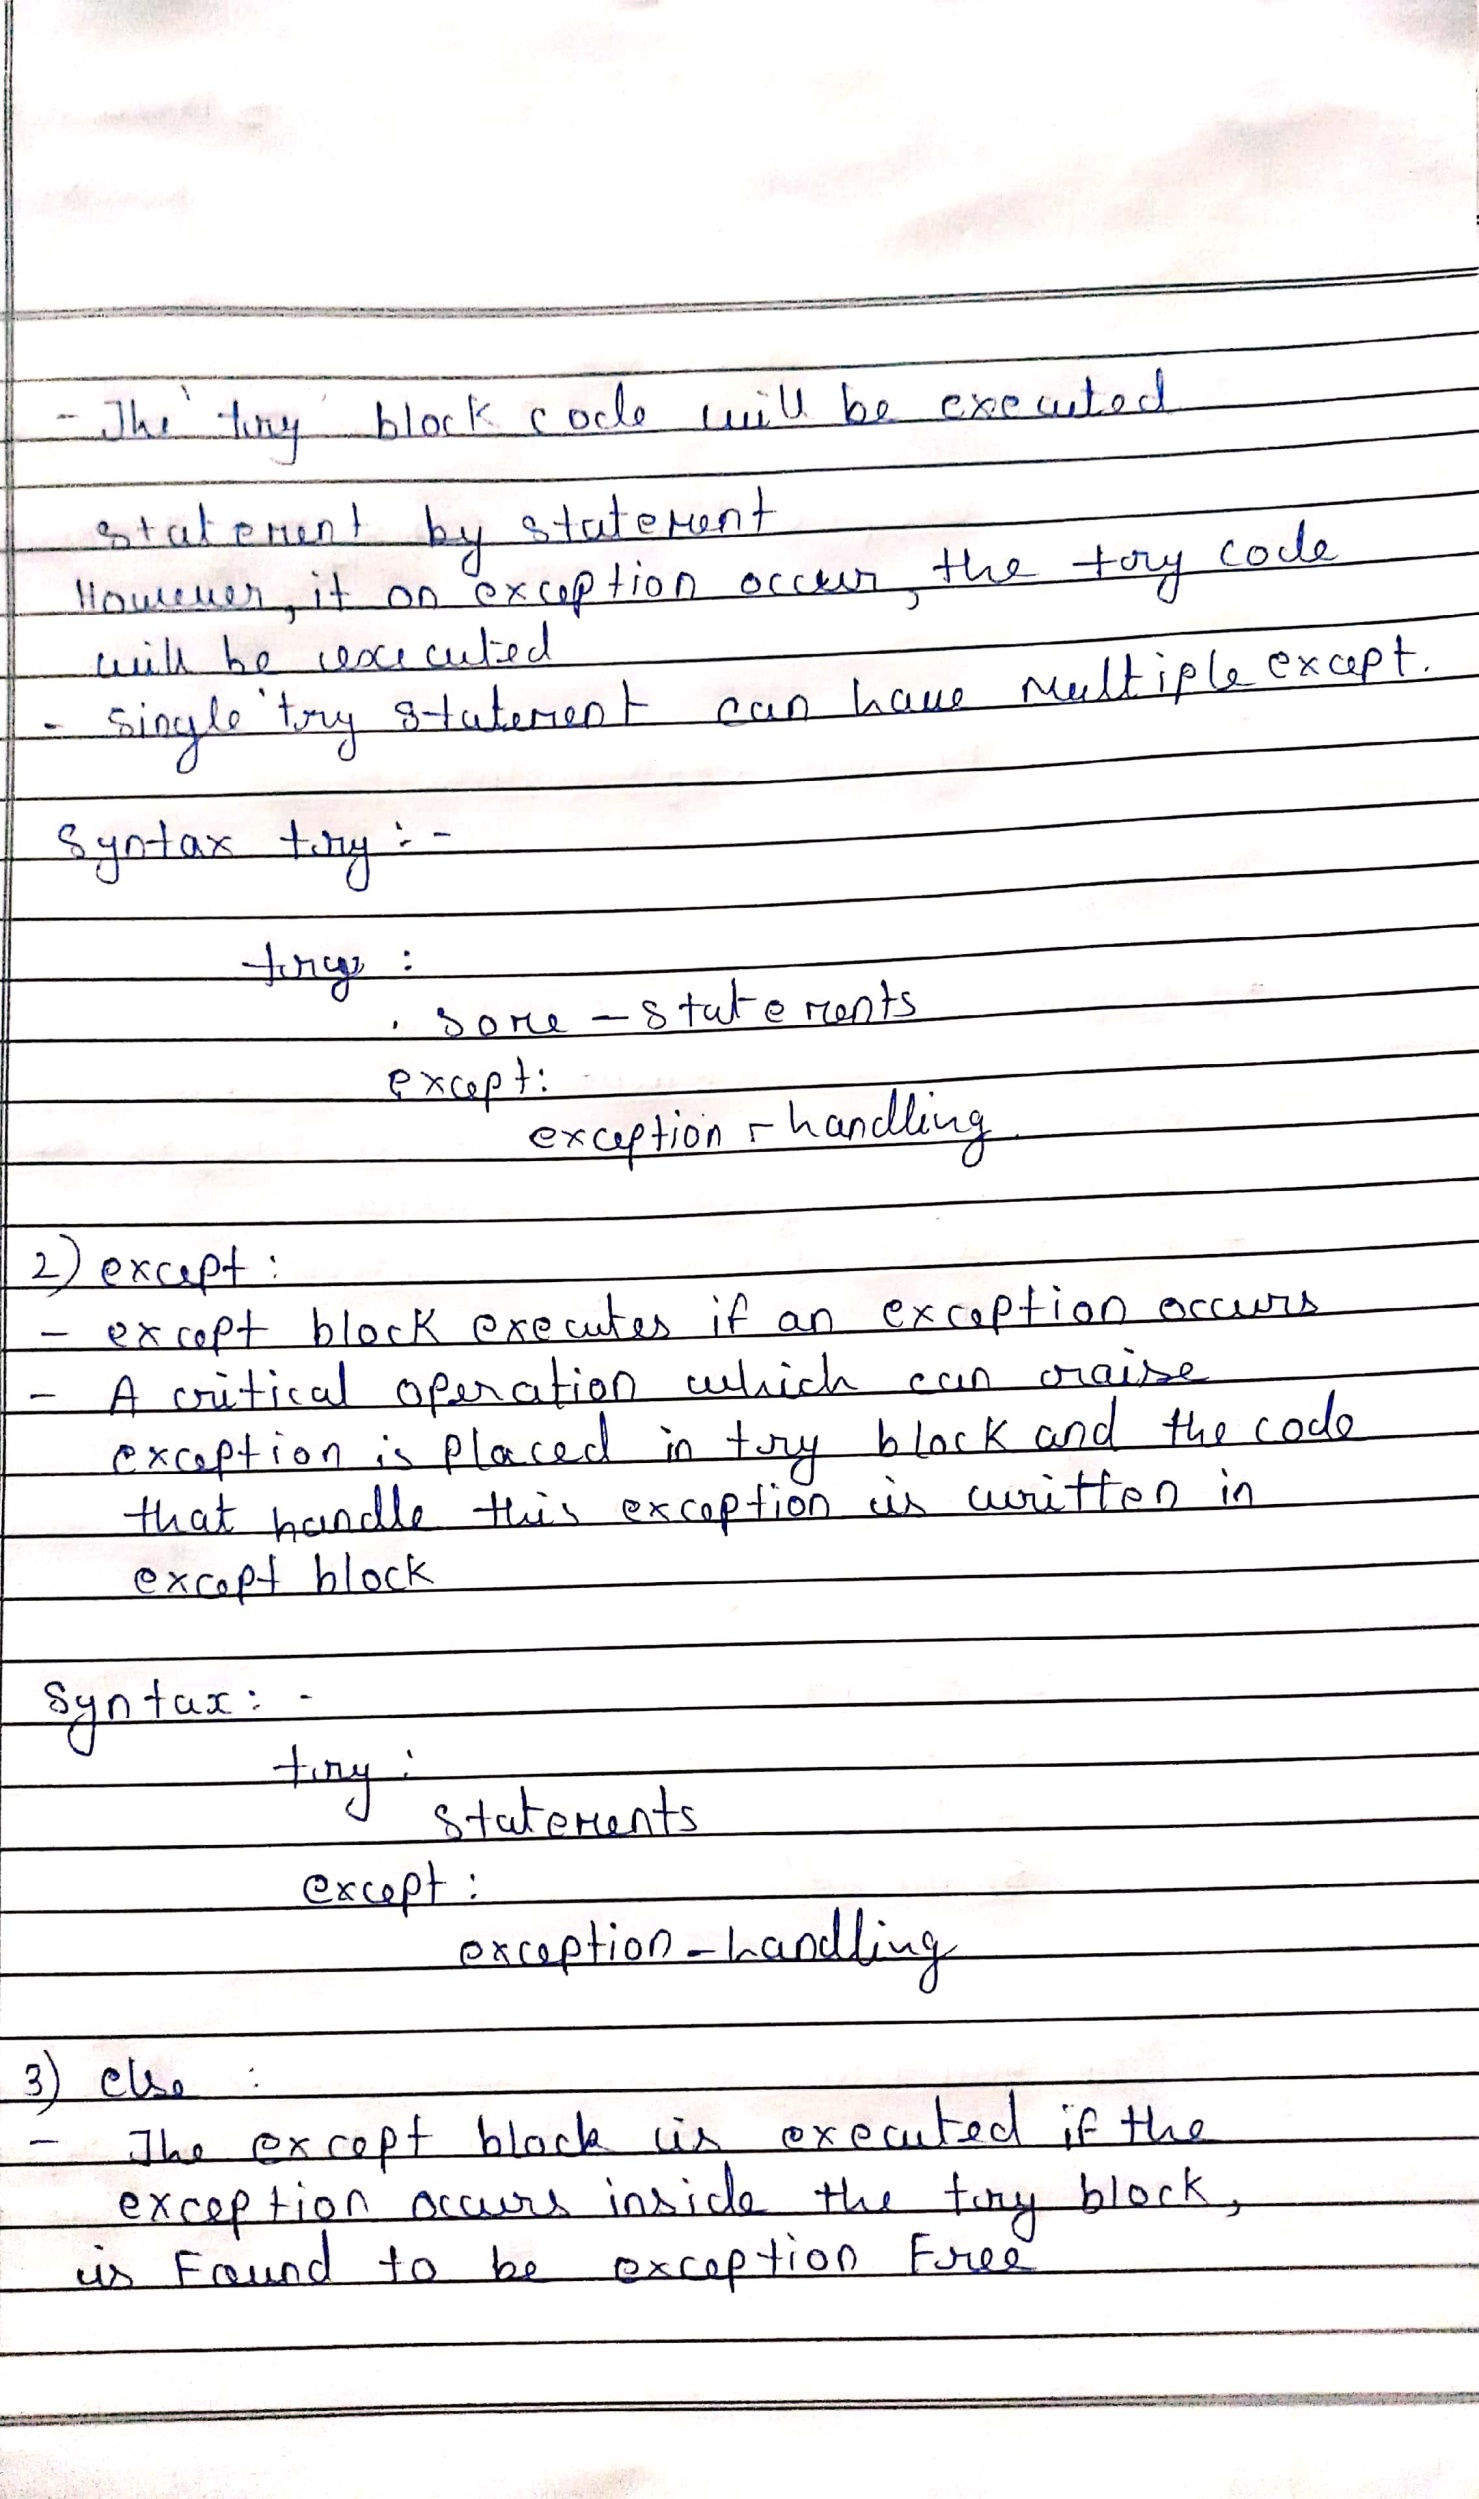 - The 'try' block code will be executed
statement by statement
However, if an exception occur, the try code
will be executed
- single 'try statement can have multiple except.
Syntax try :-
try :
. some - statements
except:
exception - handling
2) except :
- except block executes if an exception occurs
- A critical operation which can raise
exception is placed in try block and the code
that handle this exception is written in
except block
Syntax: -
try :
statements
except :
exception - handling
3) else :
- The except block is executed if the
exception occurs inside the try block,
is Found to be exception Free